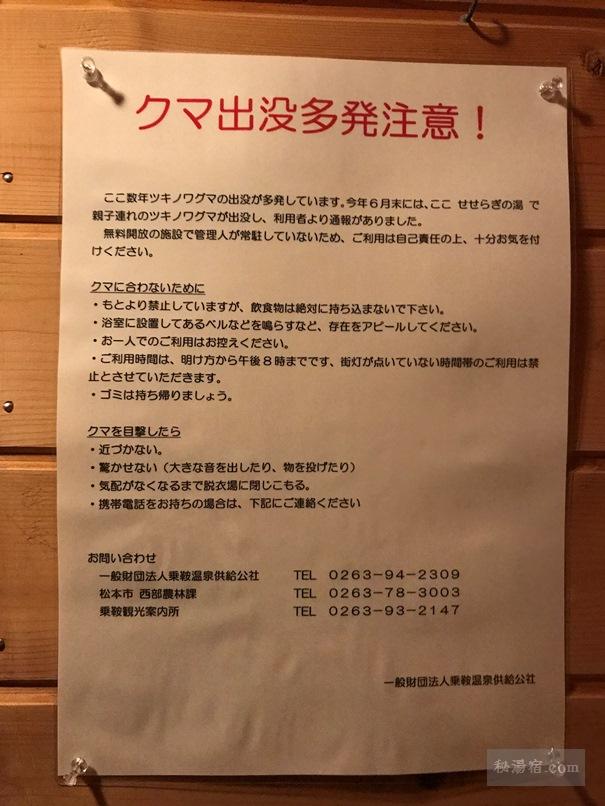 クマ出没多発注意！
ここ数年ツキノワグマの出没が多発しています。今年６月末には、ここ せせらぎの湯 で
親子連れのツキノワグマが出没し、利用者より通報がありました。
無料開放の施設で管理人が常駐していないため、ご利用は自己責任の上、十分お気を付
けください。
クマに合わないために
・もとより禁止していますが、飲食物は絶対に持ち込まないで下さい。
・浴室に設置してあるベルなどを鳴らすなど、存在をアピールしてください。
・お一人でのご利用はお控えください。
・ご利用時間は、明け方から午後８時までです、街灯が点いていない時間帯のご利用は禁
止とさせていただきます。
・ゴミは持ち帰りましょう。
クマを目撃したら
・近づかない。
・驚かせない（大きな音を出したり、物を投げたり）
・気配がなくなるまで脱衣場に閉じこもる。
・携帯電話をお持ちの場合は、下記にご連絡ください
お問い合わせ
一般財団法人乗鞍温泉供給公社 TEL ０２６３－９４－２３０９
松本市 西部農林課 TEL ０２６３－７８－３００３
乗鞍観光案内所 TEL ０２６３－９３－２１４７
一般財団法人乗鞍温泉供給公社
秘湯宿.com